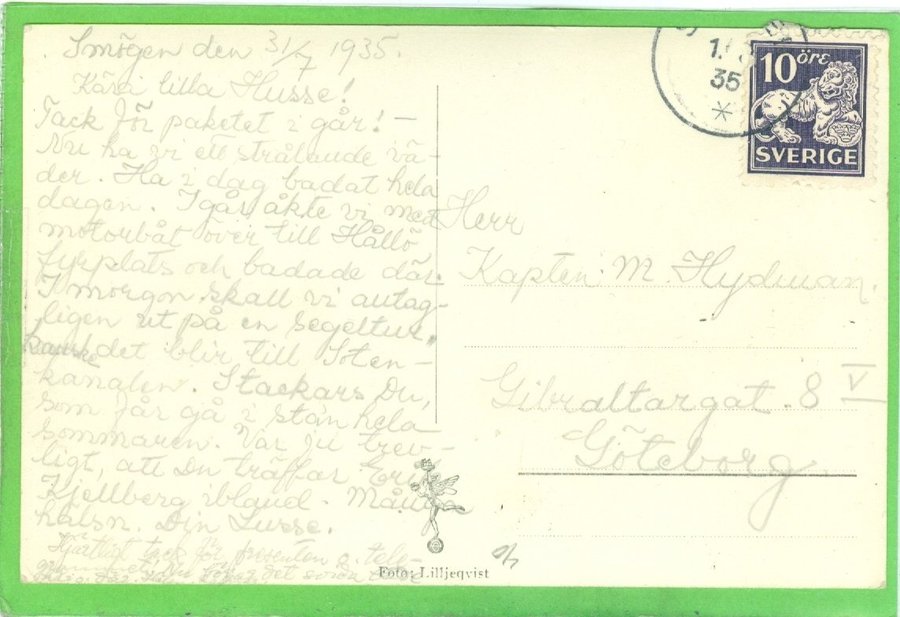 Smögen den 31/7 1935.
Kära lilla Husse!
Tack för paketet i går! —
Nu ha vi ett strålande vä-
der. Ha i dag badat hela
dagen. I går åkte vi med
motorbåt över till Hållö
fyrplats och badade där.
I morgon skall vi antag-
ligen ut på en segeltur,
kanske det blir till Soten-
kanalen. Stackars Du,
som får gå i stan hela
sommaren. Var ju trev-
ligt, att Du träffar
Kjellberg ibland. Många
hälsn. Din Lusse.
Hjärtligt tack för presenten
Herr
Kapten M. Hydman.
Gibraltargat. 8 V
Göteborg
Foto: Lilljeqvist
10 öre
SVERIGE
35